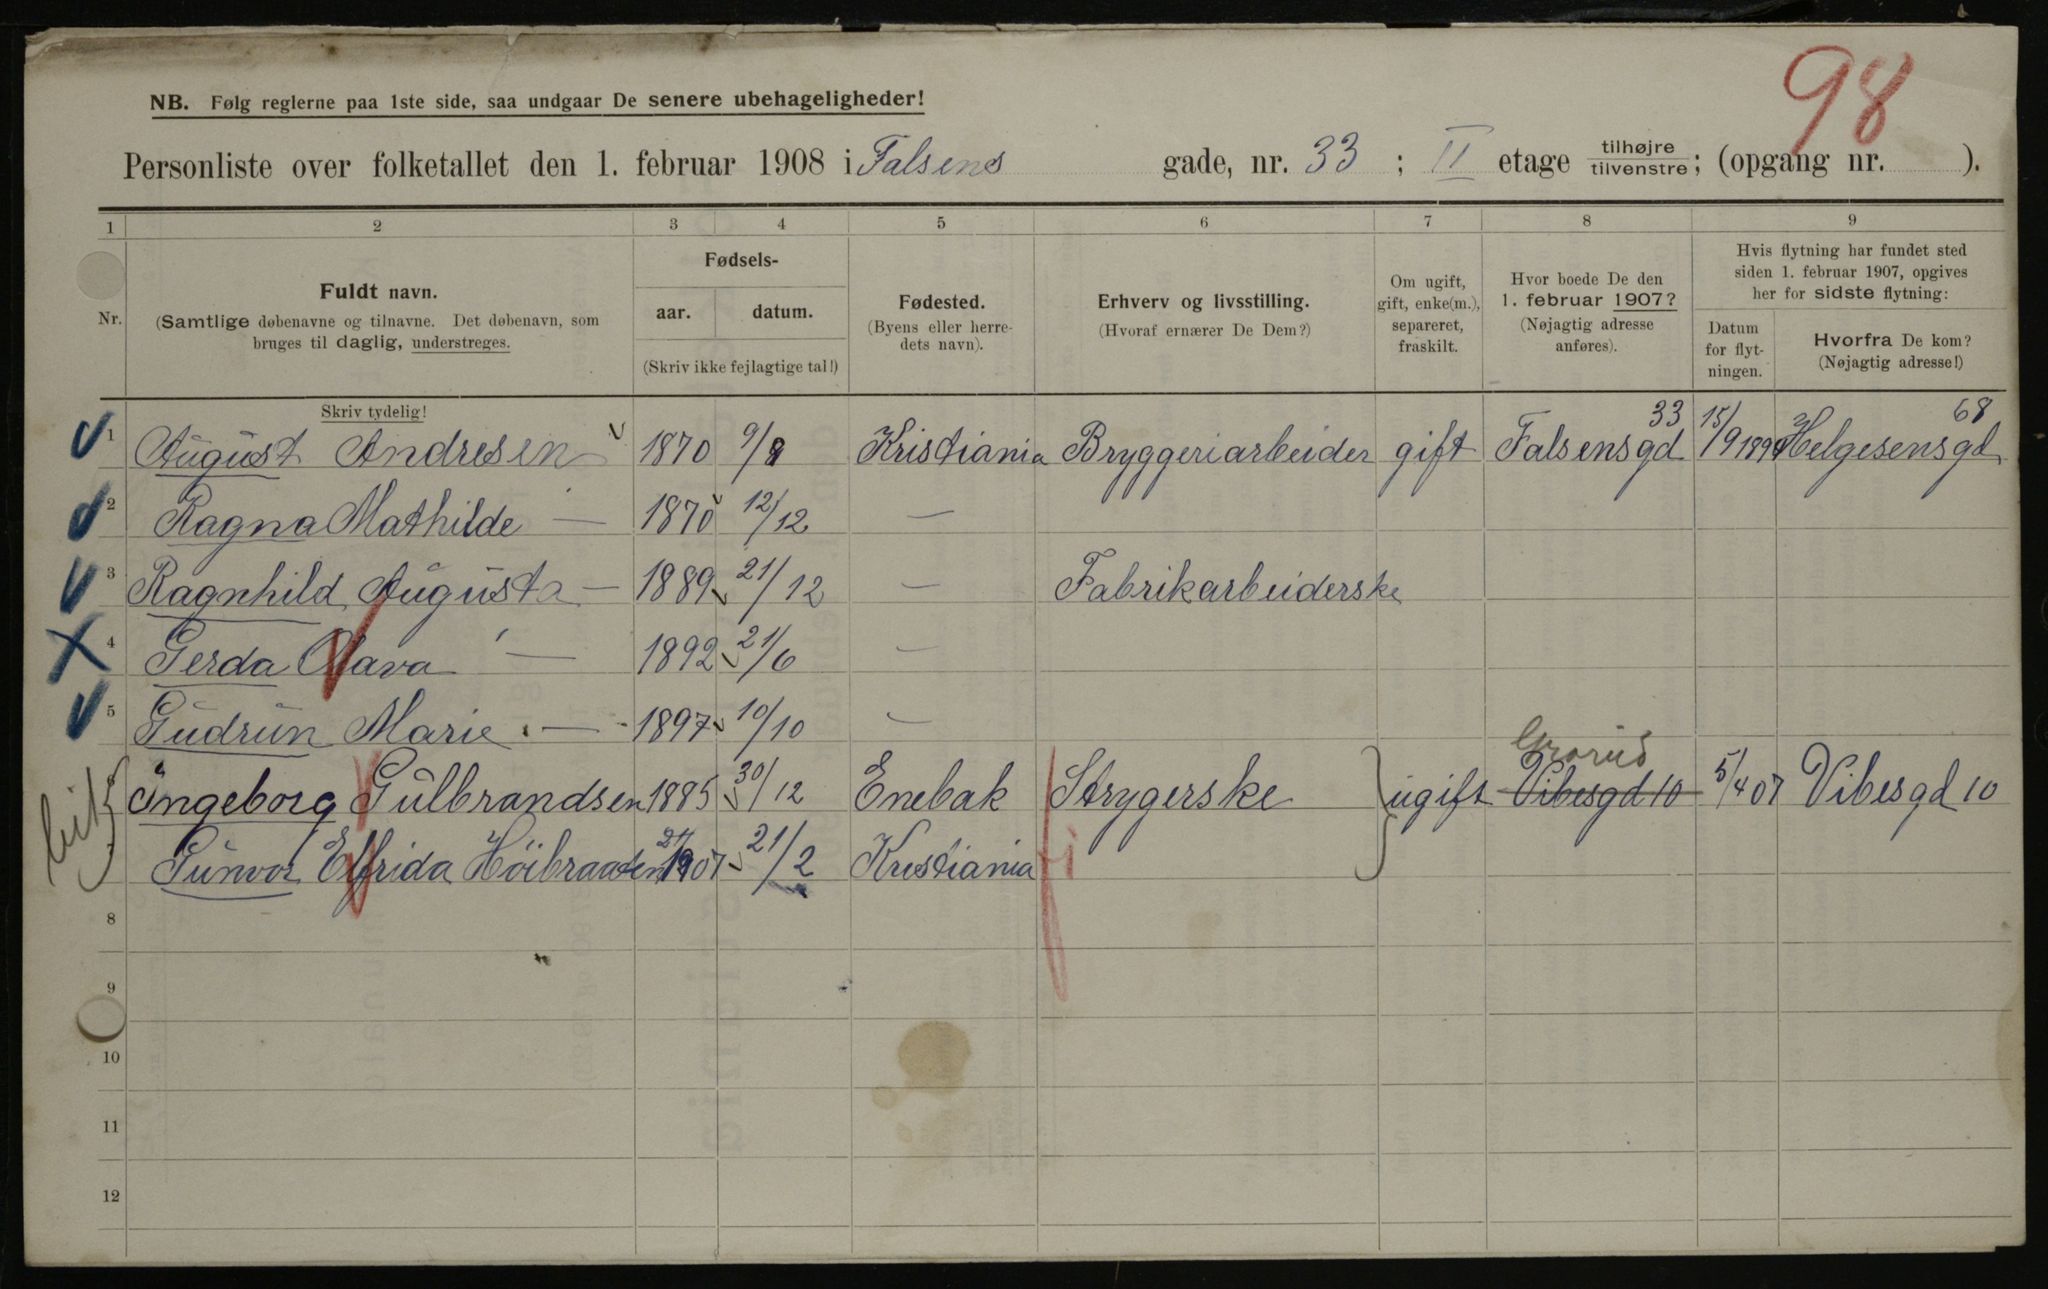 98
NB. Følg reglerne paa 1ste side, saa undgaar De senere ubehageligheder!
Personliste over folketallet den 1. februar 1908 i Falsens gade, nr. 33 ; II etage tilhøjre tilvenstre; (opgang nr. ).
1 2 3 4 5 6 7 8 9
Nr.
Fuldt navn.
(Samtlige døbenavne og tilnavne. Det døbenavn, som
bruges til daglig, understreges.
Fødsels-
aar. datum.
(Skriv ikke fejlagtige tal!)
Fødested.
(Byens eller herre-
dets navn).
Erhverv og livsstilling.
(Hvoraf ernærer De Dem?)
Om ugift,
gift, enke(m.),
separeret,
fraskilt.
Hvor boede De den
1. februar 1907?
(Nøjagtig adresse
anføres).
Hvis flytning har fundet sted
siden 1. februar 1907, opgives
her for sidste flytning:
Datum
for flyt-
ningen.
Hvorfra De kom?
(Nøjagtig adresse!)
Skriv tydelig!
1 August Andresen 1870 9/8 Kristiania Bryggeriarbeider gift Falsensgd 33 15/9 Helgesensgd 68
2 Ragna Mathilde — 1870 12/12 —
3 Ragnhild Augusta — 1889 21/12 — Fabrikarbeiderske
4 Gerda Olava — 1892 21/6 —
5 Gudrun Marie — 1897 10/10 —
Grorud
6 Ingeborg Gulbrandsen 1885 30/12 Enebak Strygerske ugift Vibesgd 10 5/4 07 Vibesgd 10
7 Gunvor Elfrida Høibraaten 1907 21/2 Kristiania
8
9
10
11
12